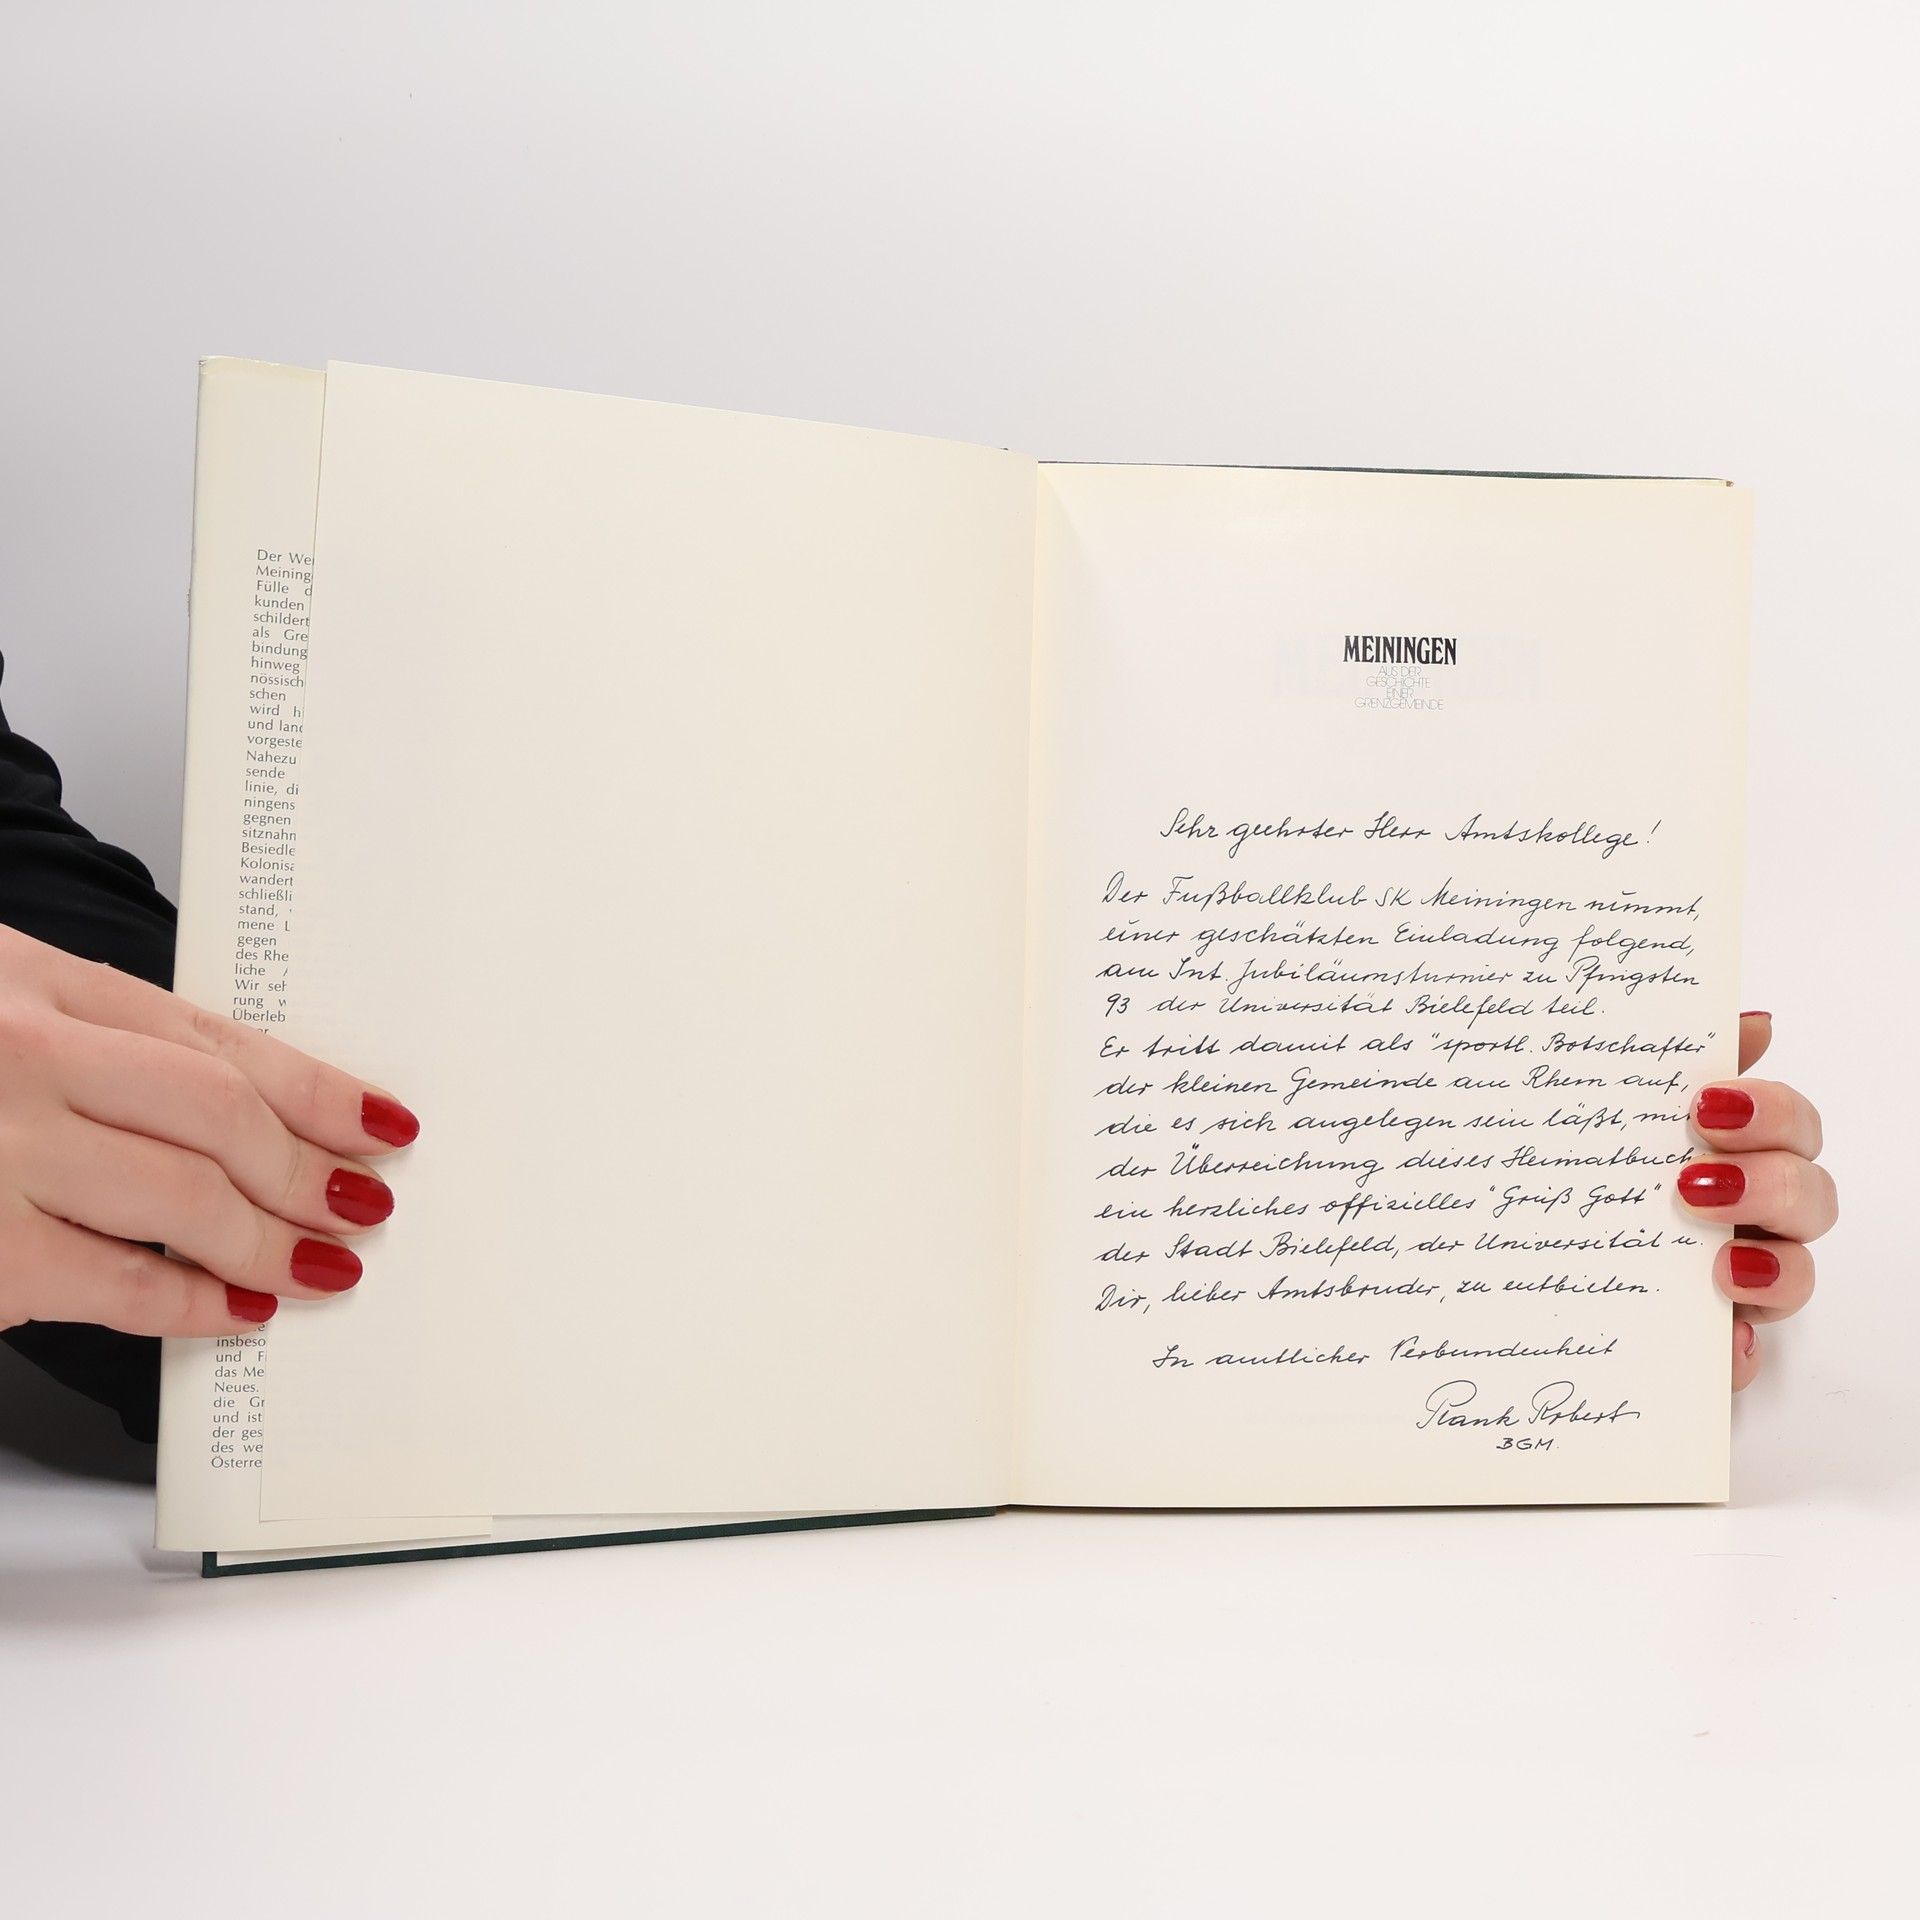 Der We
Meining
Fülle d
kunden
schildert
als Gre
bindung
hinweg
nössisch
schen
wird hi
und land
vorgeste
Nahezu
sende
linie, di
ningens
gegnen
sitznahn
Besiedle
Kolonisa
wandert
schließli
stand,
mene L
gegen
des Rhe
liche A
Wir seh
rung w
Überleb
insbeso
und Fi
das Me
Neues.
die Gr
und ist
der ges
des we
Österre
MEININGEN
AUS DER
GESCHICHTE
EINER
GRENZGEMEINDE
Sehr geehrter Herr Amtskollege!
Der Fußballklub SK Meiningen nimmt,
einer geschätzten Einladung folgend,
am Int. Jubiläumsturnier zu Pfingsten
93 der Universität Bielefeld teil.
Er tritt damit als "sportl. Botschafter"
der kleinen Gemeinde am Rhein auf,
die es sich angelegen sein läßt, mit
der Überreichung dieses Heimatbuch
ein herzliches offizielles "Grüß Gott"
der Stadt Bielefeld, der Universität u.
Dir, lieber Amtsbruder, zu entbieten.
In amtlicher Verbundenheit
Robert
BGM.